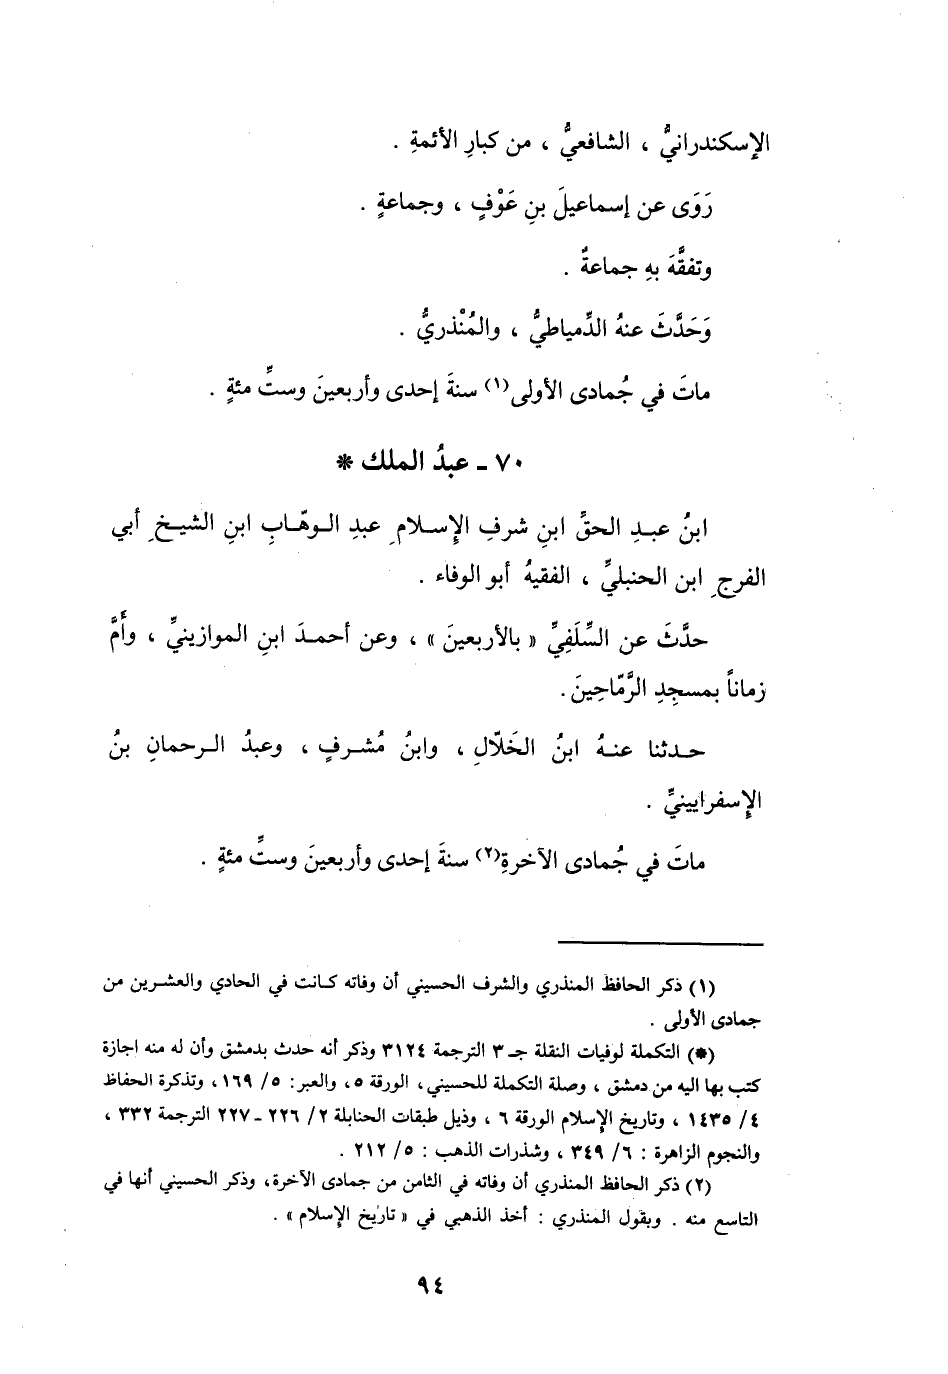 الإسكندرانيُّ ، الشافعيُّ ، من كبارِ الأئمةِ .
رَوَى عن إسماعيلَ بنِ عَوْفٍ ، وجماعةٍ .
وتفقَّهَ بهِ جماعةٌ .
وَحَدَّثَ عنهُ الدِّمياطيُّ ، والمُنْذريُّ .
ماتَ في جُمادى الأولى(١) سنةَ إحدى وأربعينَ وستِّ مئةٍ .
٧٠ ـ عبدُ الملك *
ابنُ عبدِ الحقِّ ابنِ شرفِ الإسلامِ عبدِ الوهّابِ ابنِ الشيخِ أبي
الفرجِ ابن الحنبليِّ ، الفقيهُ أبو الوفاء .
حدَّثَ عن السِّلَفِيِّ « بالأربعينَ » ، وعن أحمدَ ابنِ الموازينيِّ ، وأَمَّ
زماناً بمسجِدِ الرَّمّاحِينَ .
حدثنا عنهُ ابنُ الخَلّالِ ، وابنُ مُشرفٍ ، وعبدُ الرحمانِ بنُ
الإسفرايينيِّ .
ماتَ في جُمادى الآخرةِ(٢) سنةَ إحدى وأربعينَ وستِّ مئةٍ .
(١) ذكر الحافظ المنذري والشرف الحسيني أن وفاته كانت في الحادي والعشرين من
جمادى الأولى .
(*) التكملة لوفيات النقلة جـ ٣ الترجمة ٣١٢٤ وذكر أنه حدث بدمشق وأن له منه اجازة
كتب بها اليه من دمشق ، وصلة التكملة للحسيني ، الورقة ٥ ، والعبر : ٥ / ١٦٩ ، وتذكرة الحفاظ
٤ / ١٤٣٥ ، وتاريخ الإسلام الورقة ٦ ، وذيل طبقات الحنابلة ٢ / ٢٢٦ ـ ٢٢٧ الترجمة ٣٣٢ ،
والنجوم الزاهرة : ٦ / ٣٤٩ ، وشذرات الذهب : ٥ / ٢١٢ .
(٢) ذكر الحافظ المنذري أن وفاته في الثامن من جمادى الآخرة ، وذكر الحسيني أنها في
التاسع منه . وبقول المنذري : أخذ الذهبي في « تاريخ الإسلام » .
٩٤